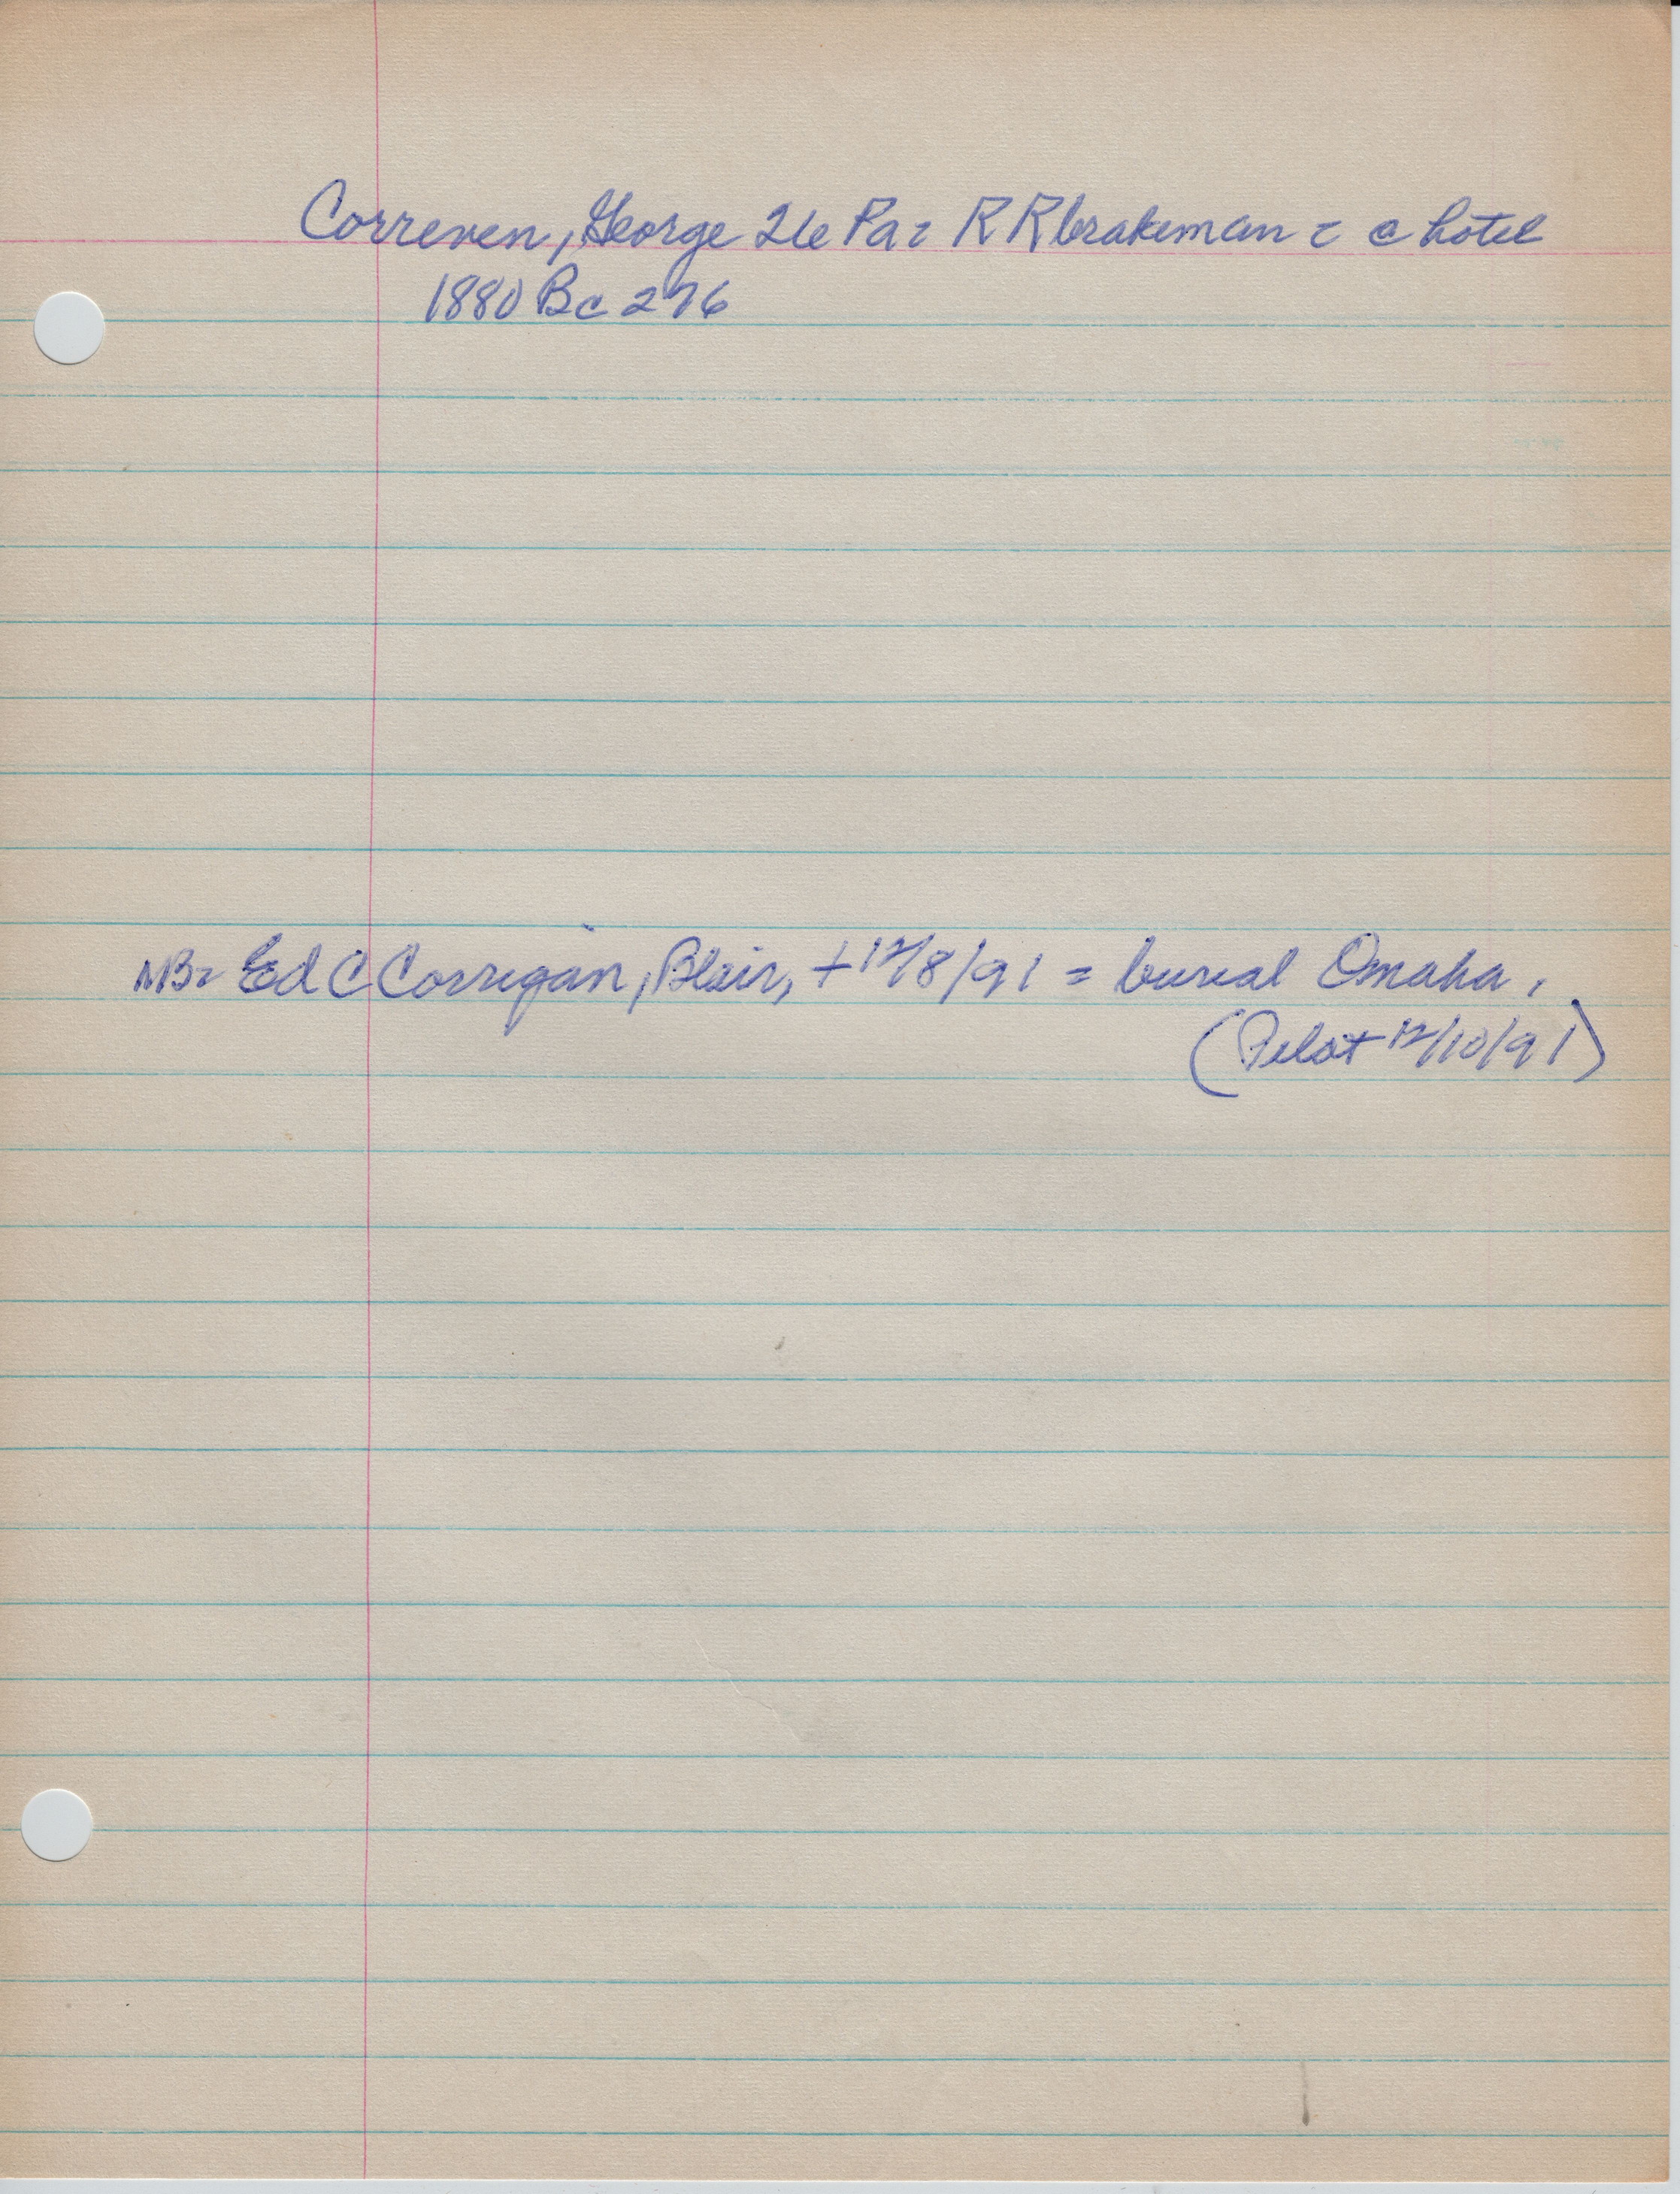 Correven, George 26 Pa = RR brakeman = @ hotel
1880 Bc 276
NB = Ed C Corrigan, Blair, + 12/8/91 = burial Omaha,
(Pilot 12/10/91)